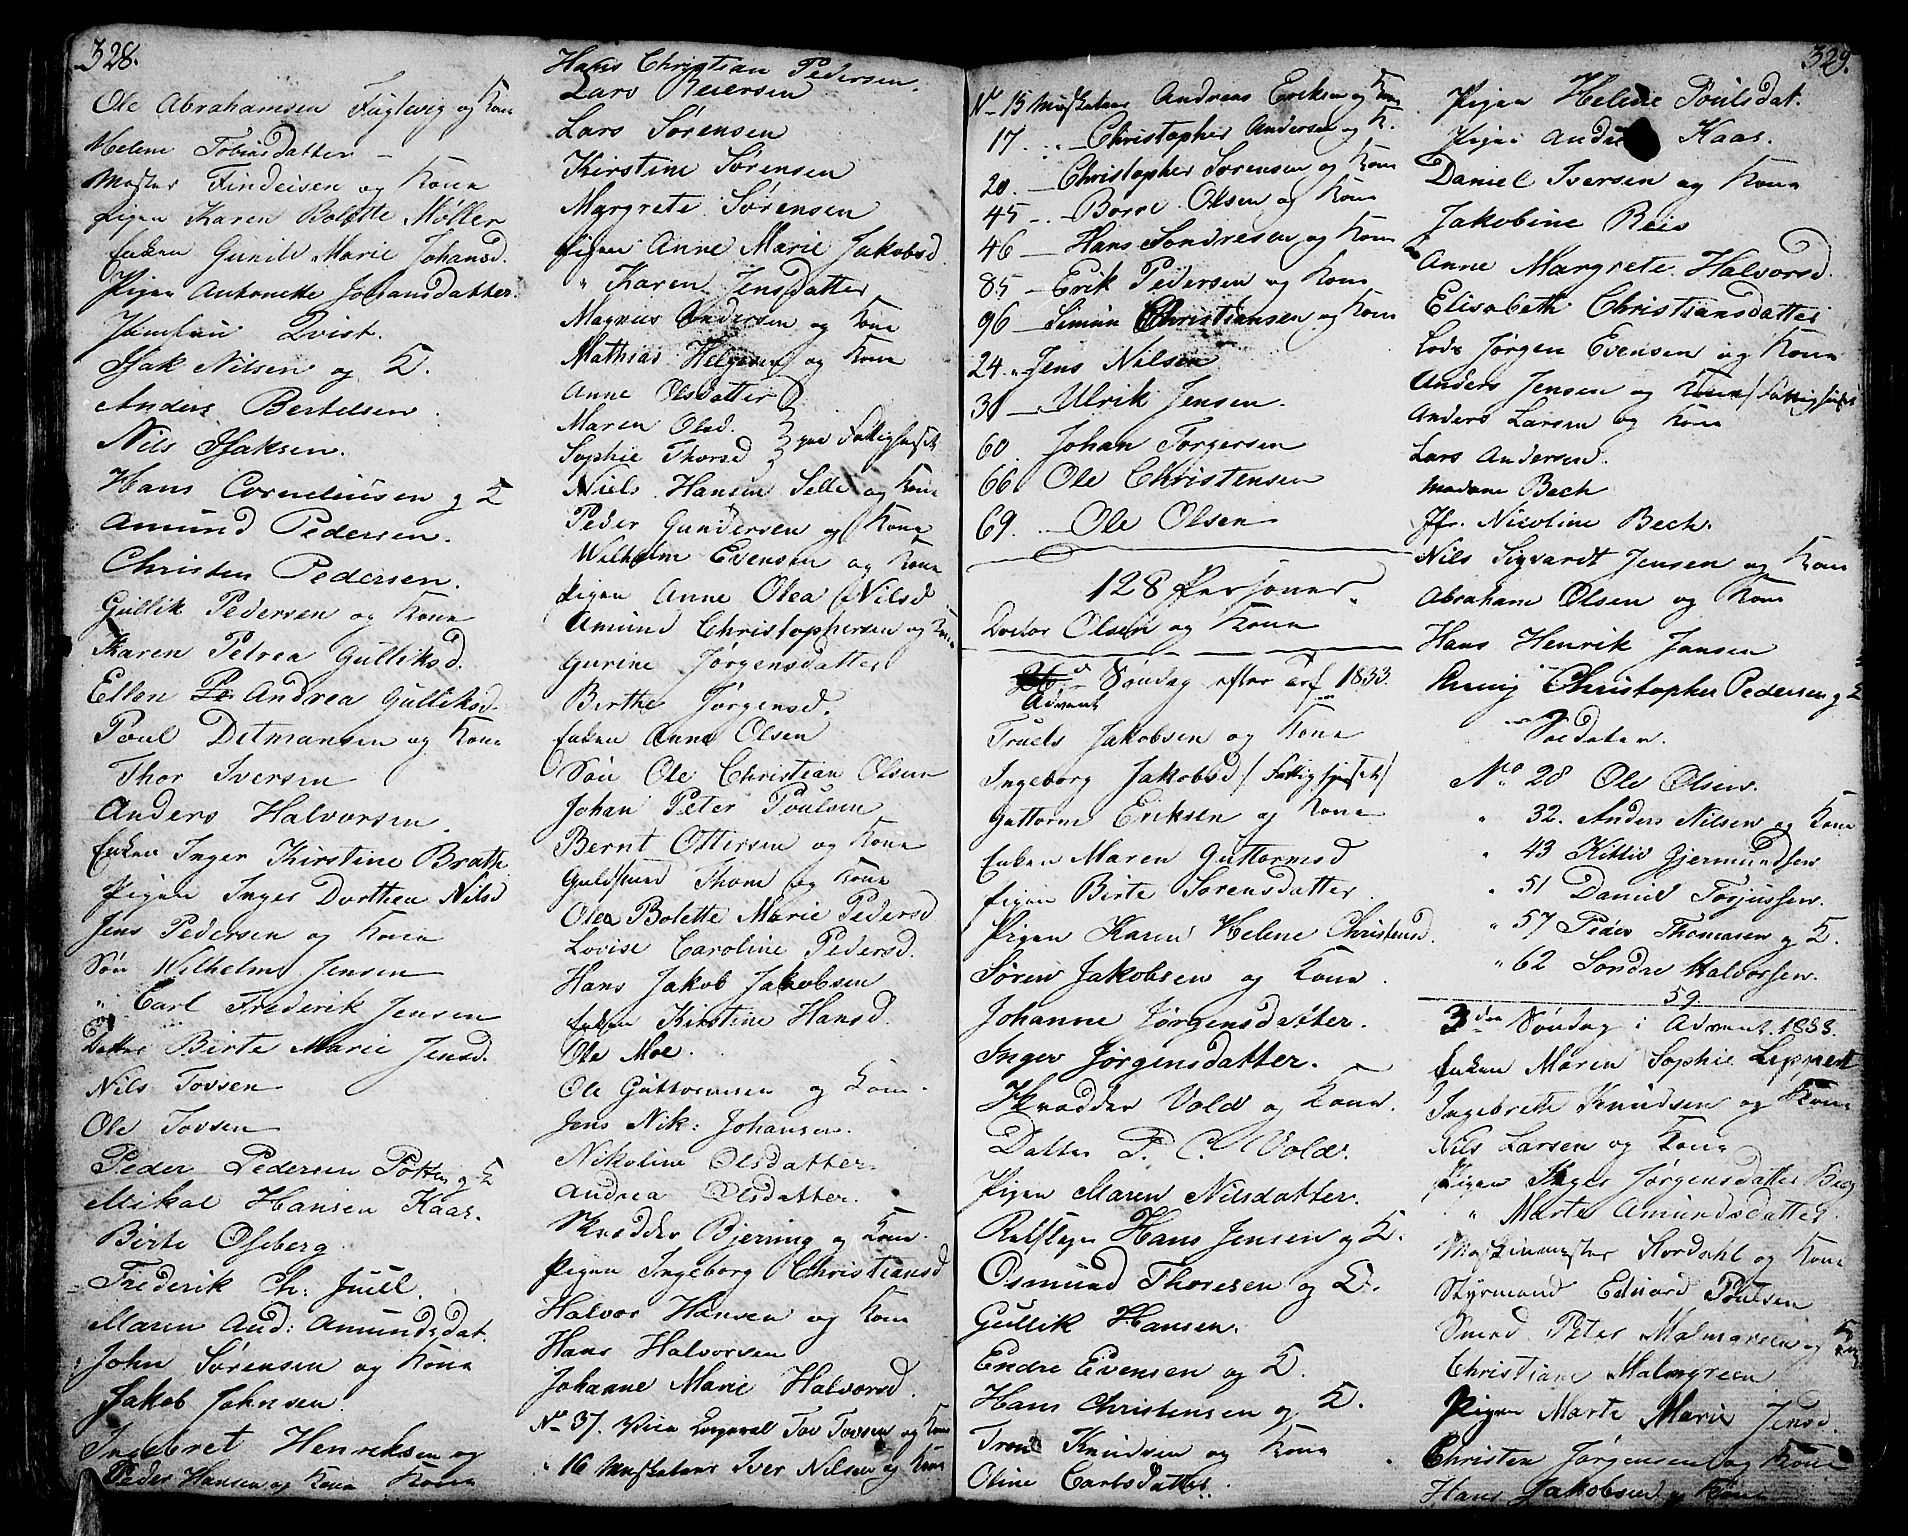 328.
Ole Abrahamsen Fuglevig og Kone
Helene Tobiasdatter
Mester Findeisen og Kone
Pigen Karen Bolette Møller
Enken Gunild Marie Johansd.
Pigen Antonette Johansdatter.
Jomfru Qvist.
Isak Nilsen og K.
Anders Bertelsen.
Nils Isaksen.
Hans Corneliusen og K
Amund Pedersen.
Christen Pedersen.
Gullik Pedersen og Kone
Karen Petrea Gulliksd.
Ellen Andrea Gulliksd.
Poul Detmansen og Kone
Thor Iversen
Anders Halvorsen.
Enken Inger Kirstine Brath
Pigen Inger Dorthea Nilsd
Jens Pedersen og Kone
Søn Wilhelm Jensen
" Carl Frederik Jensen
Datter Birte Marie Jensd.
Nils Tovsen
Ole Tovsen
Peder Pedersen Potten og K
Mikal Hansen Kaas.
Birte Oseberg
Frederik Ch: Juell.
Maren And: Amundsdat.
John Sørensen og Kone
Jakob Johnsen.
Ingebret Henriksen og Kone
Peder Hansen og Kone
Hans Christian Pedersen.
Lars Reiersen
Lars Sørensen
Kirstine Sørensen
Margrete Sørensen
Pigen Anne Marie Jakobsd.
" Karen Jensdatter
Magnus Andersen og Kone
Mathias Helgesen og Kone
Anne Olsdatter
Maren Olsd.
Sophie Thorsd } paa Fattighuset
Niels Hansen Selle og Kone
Peder Gundersen og Kone
Wilhelm Evensen og Kone
Pigen Anne Olea Nilsd
Amund Christophersen og Kone
Gurine Jørgensdatter
Birthe Jørgensd.
Enken Anne Olsen
Søn Ole Christian Olsen
Johan Peter Poulsen
Bernt Ottersen og Kone
Guldsmed Thom og Kone
Olea Bolette Marie Pedersd
Lovise Caroline Pedersd.
Hans Jakob Jakobsen
Enken Kirstine Hansd.
Ole Moe.
Ole Guttormsen og Kone.
Jens Nik: Johansen.
Nikoline Olsdatter.
Andrea Olsdatter.
Skredder Bjerring og Kone.
Pigen Ingeborg Christiansd
Halvor Hansen og Kone
Hans Halvorsen
Johanne Marie Halvorsd.
No 37. Tov Tovsen og Kone
" 16 Musketeer Iver Nilsen og Kone
329.
No 15 Musketeer Andreas Eriksen og Kone
17. " — Christopher Andersen og K.
20. — Christopher Sørensen og Kone
45 — Borre Olsen og Kone
46 — Hans Sondresen og Kone
85 — Erik Pedersen og Kone
96 — Simon Christiansen og Kone
24. " Jens Nilsen
31 — Ulrik Jensen.
60. Johan Torgersen
66. Ole Christensen
69. — Ole Olsen
128 Personer.
Doctor Olsen og Kone
2d Søndag efter Trf 1833.
Advent
Truels Jakobsen og Kone
Ingeborg Jakobsd / Fattighuset /
Guttorm Eriksen og Kone
Enken Maren Guttormsd
Pigen Birte Sørensdatter
Pigen Karen Helene Christensd.
Søren Jakobsen og Kone.
Johanne Jørgensdatter.
Inger Jørgensdatter.
Skredder Vold og Kone.
Datter P. C. Vold.
Pigen Maren Nilsdatter.
Hans Jensen og K.
Osmund Thoresen og K.
Gullik Hansen.
Endre Evensen og K.
Hans Christensen og K.
Trond Knudsen og Kone
Oline Carlsdatter.
Pigen Helene Poulsdat.
Pigen Andrea Kaas.
Daniel Iversen og Kone
Jakobine Reis
Anne Margrete Halvorsd.
Elisabeth Christiansdatter
Lods Jørgen Evensen og Kone
Anders Jensen og Kone / Fattighuset
Anders Larsen og Kone
Lars Andersen.
Madame Bech
Jfr. Nicoline Bech.
Nils Sigvardt Jensen og Kone
Abraham Olsen og Kone
Hans Henrik Jansen
Christopher Pedersen og K
Soldater.
No 28 Ole Olsen.
" 32. Anders Nilsen og Kone
" 43 Kittil Gjermundsen
" 51 Daniel Torjussen.
" 57 Peder Thomasen og K.
" 62 Sondre Halvorsen.
59
3die Søndag i Advent 1833.
Enken Maren Sophie Leppert
Ingebrett Knudsen og Kone
Nils Larsen og Kone
Pigen Inger Jørgensdatter Berg
" Marte Amundsdatter
Maskinmester Nordahl og Kone
Styrmand Eduard Poulsen
Smed Peter Malmgreen og Kone
Christiane Malmgreen
Pigen Marte Marie Jensd
Christen Jørgensen og Kone
Hans Jakobsen og Kone